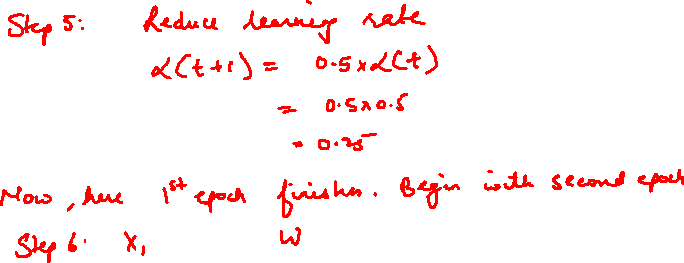 Step 5: Reduce learning rate
α(t+1) = 0.5xα(t)
= 0.5x0.5
= 0.25
Now, here 1st epoch finishes. Begin with second epoch
Step 6. X₁ W